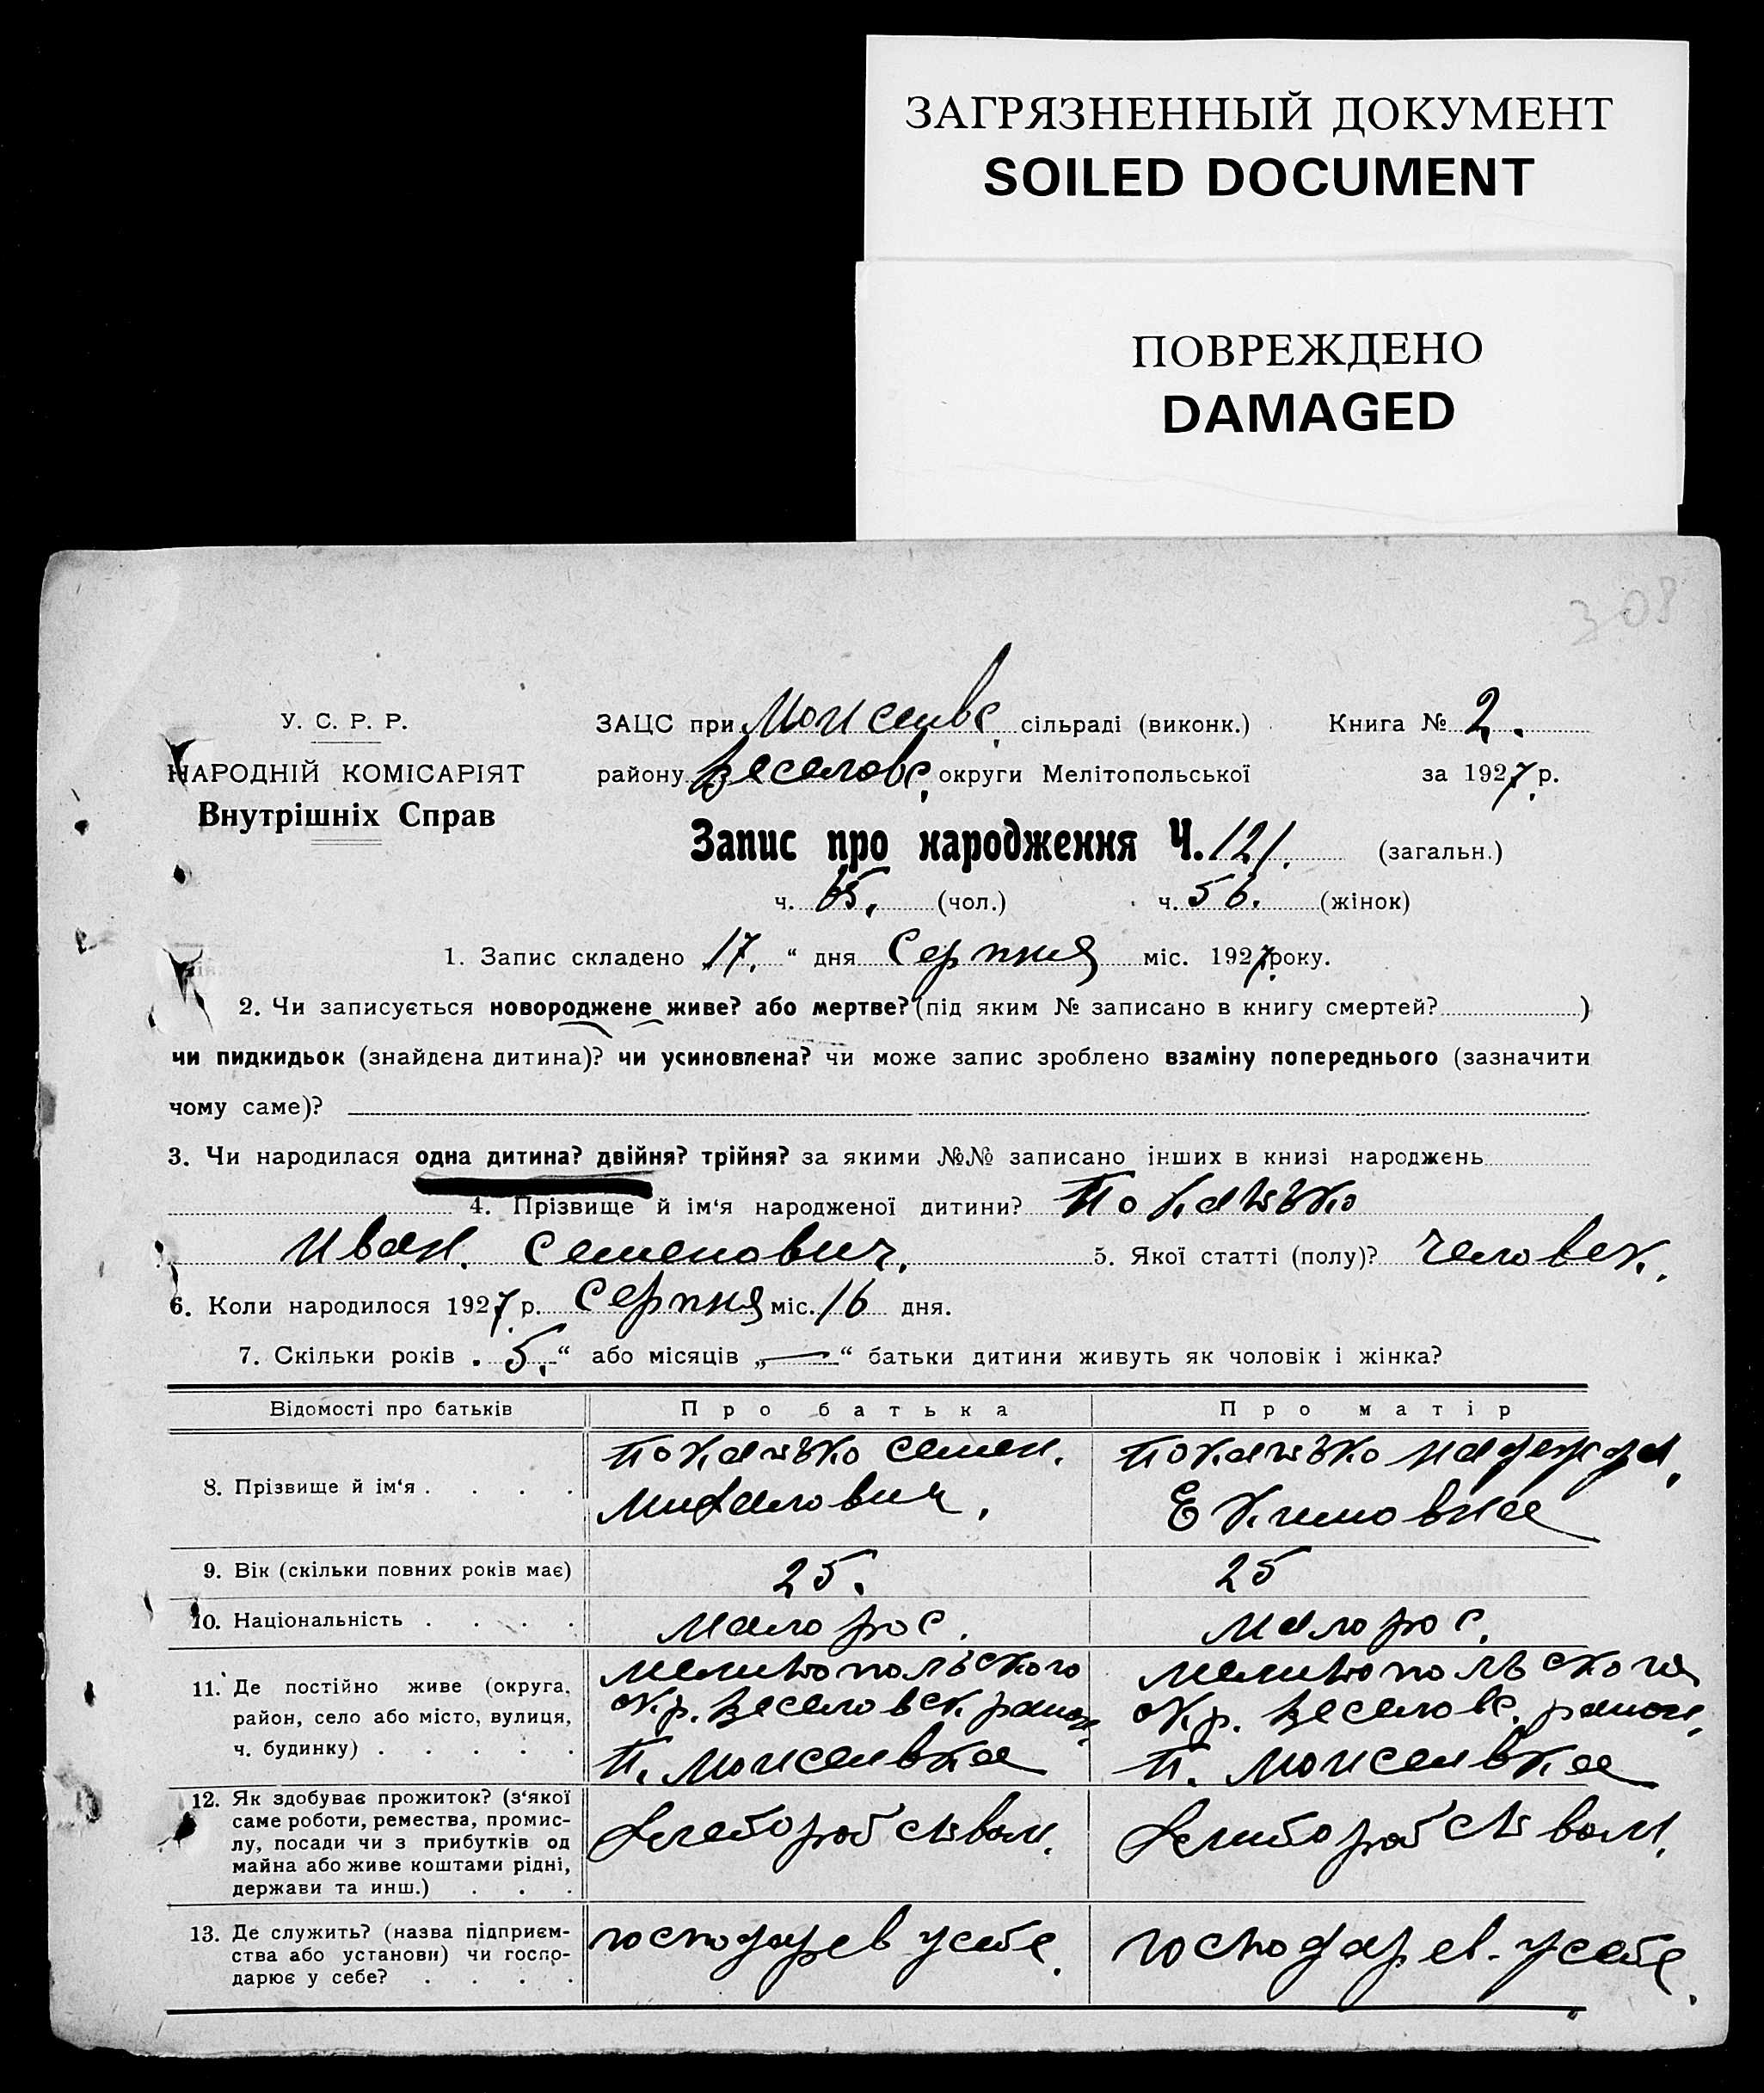 ЗАГРЯЗНЕННЫЙ ДОКУМЕНТ
SOILED DOCUMENT
ПОВРЕЖДЕНО
DAMAGED
308
У. С. Р. Р.
НАРОДНІЙ КОМІСАРІЯТ
Внутрішніх Справ
ЗАЦС при Моисеивс. сільраді (виконк.) Книга № 2.
району Веселовс. округи Мелітопольської за 1927 р.
Запис про народження Ч. 121. (загальн.)
ч. 65. (чол.) ч. 56. (жінок)
1. Запис складено „17.“ дня Серпня міс. 1927 року.
2. Чи записується новороджене живе? або мертве? (під яким № записано в книгу смертей? )
чи пидкидьок (знайдена дитина)? чи усиновлена? чи може запис зроблено взаміну попереднього (зазначити
чому саме)?
3. Чи народилася одна дитина? двійня? трійня? за якими №№ записано інших в книзі народжень
4. Прізвище й ім‘я народженої дитини?
Иван. Семенович. 5. Якої статті (полу)? человек.
6. Коли народилося 1927 р. Серпня міс. 16 дня.
7. Скільки років „5.“ або місяців „—“ батьки дитини живуть як чоловік і жінка?
Відомості про батьків
Про батька
Про матір
8. Прізвище й ім‘я . . . .
Семен.
Михалович.
Екимовна
9. Вік (скільки повних років має)
25.
25
10. Національність . . . .
Малорос.
Малорос.
11. Де постійно живе (округа,
район, село або місто, вулиця,
ч. будинку) . . . . .
Мелитопольского
окр. Веселовск. район.
п. Моисеивка
Мелитопольского
окр. Веселовс. район.
п. Моисеивка
12. Як здобуває прожиток? (з‘якої
саме роботи, ремества, промис-
лу, посади чи з прибутків од
майна або живе коштами рідні,
держави та инш.) . . .
хлеборобством.
хлиборобством.
13. Де служить? (назва підприєм-
ства або установи) чи госпо-
дарює у себе? . . . .
господарев у себе.
господарев. у себе.